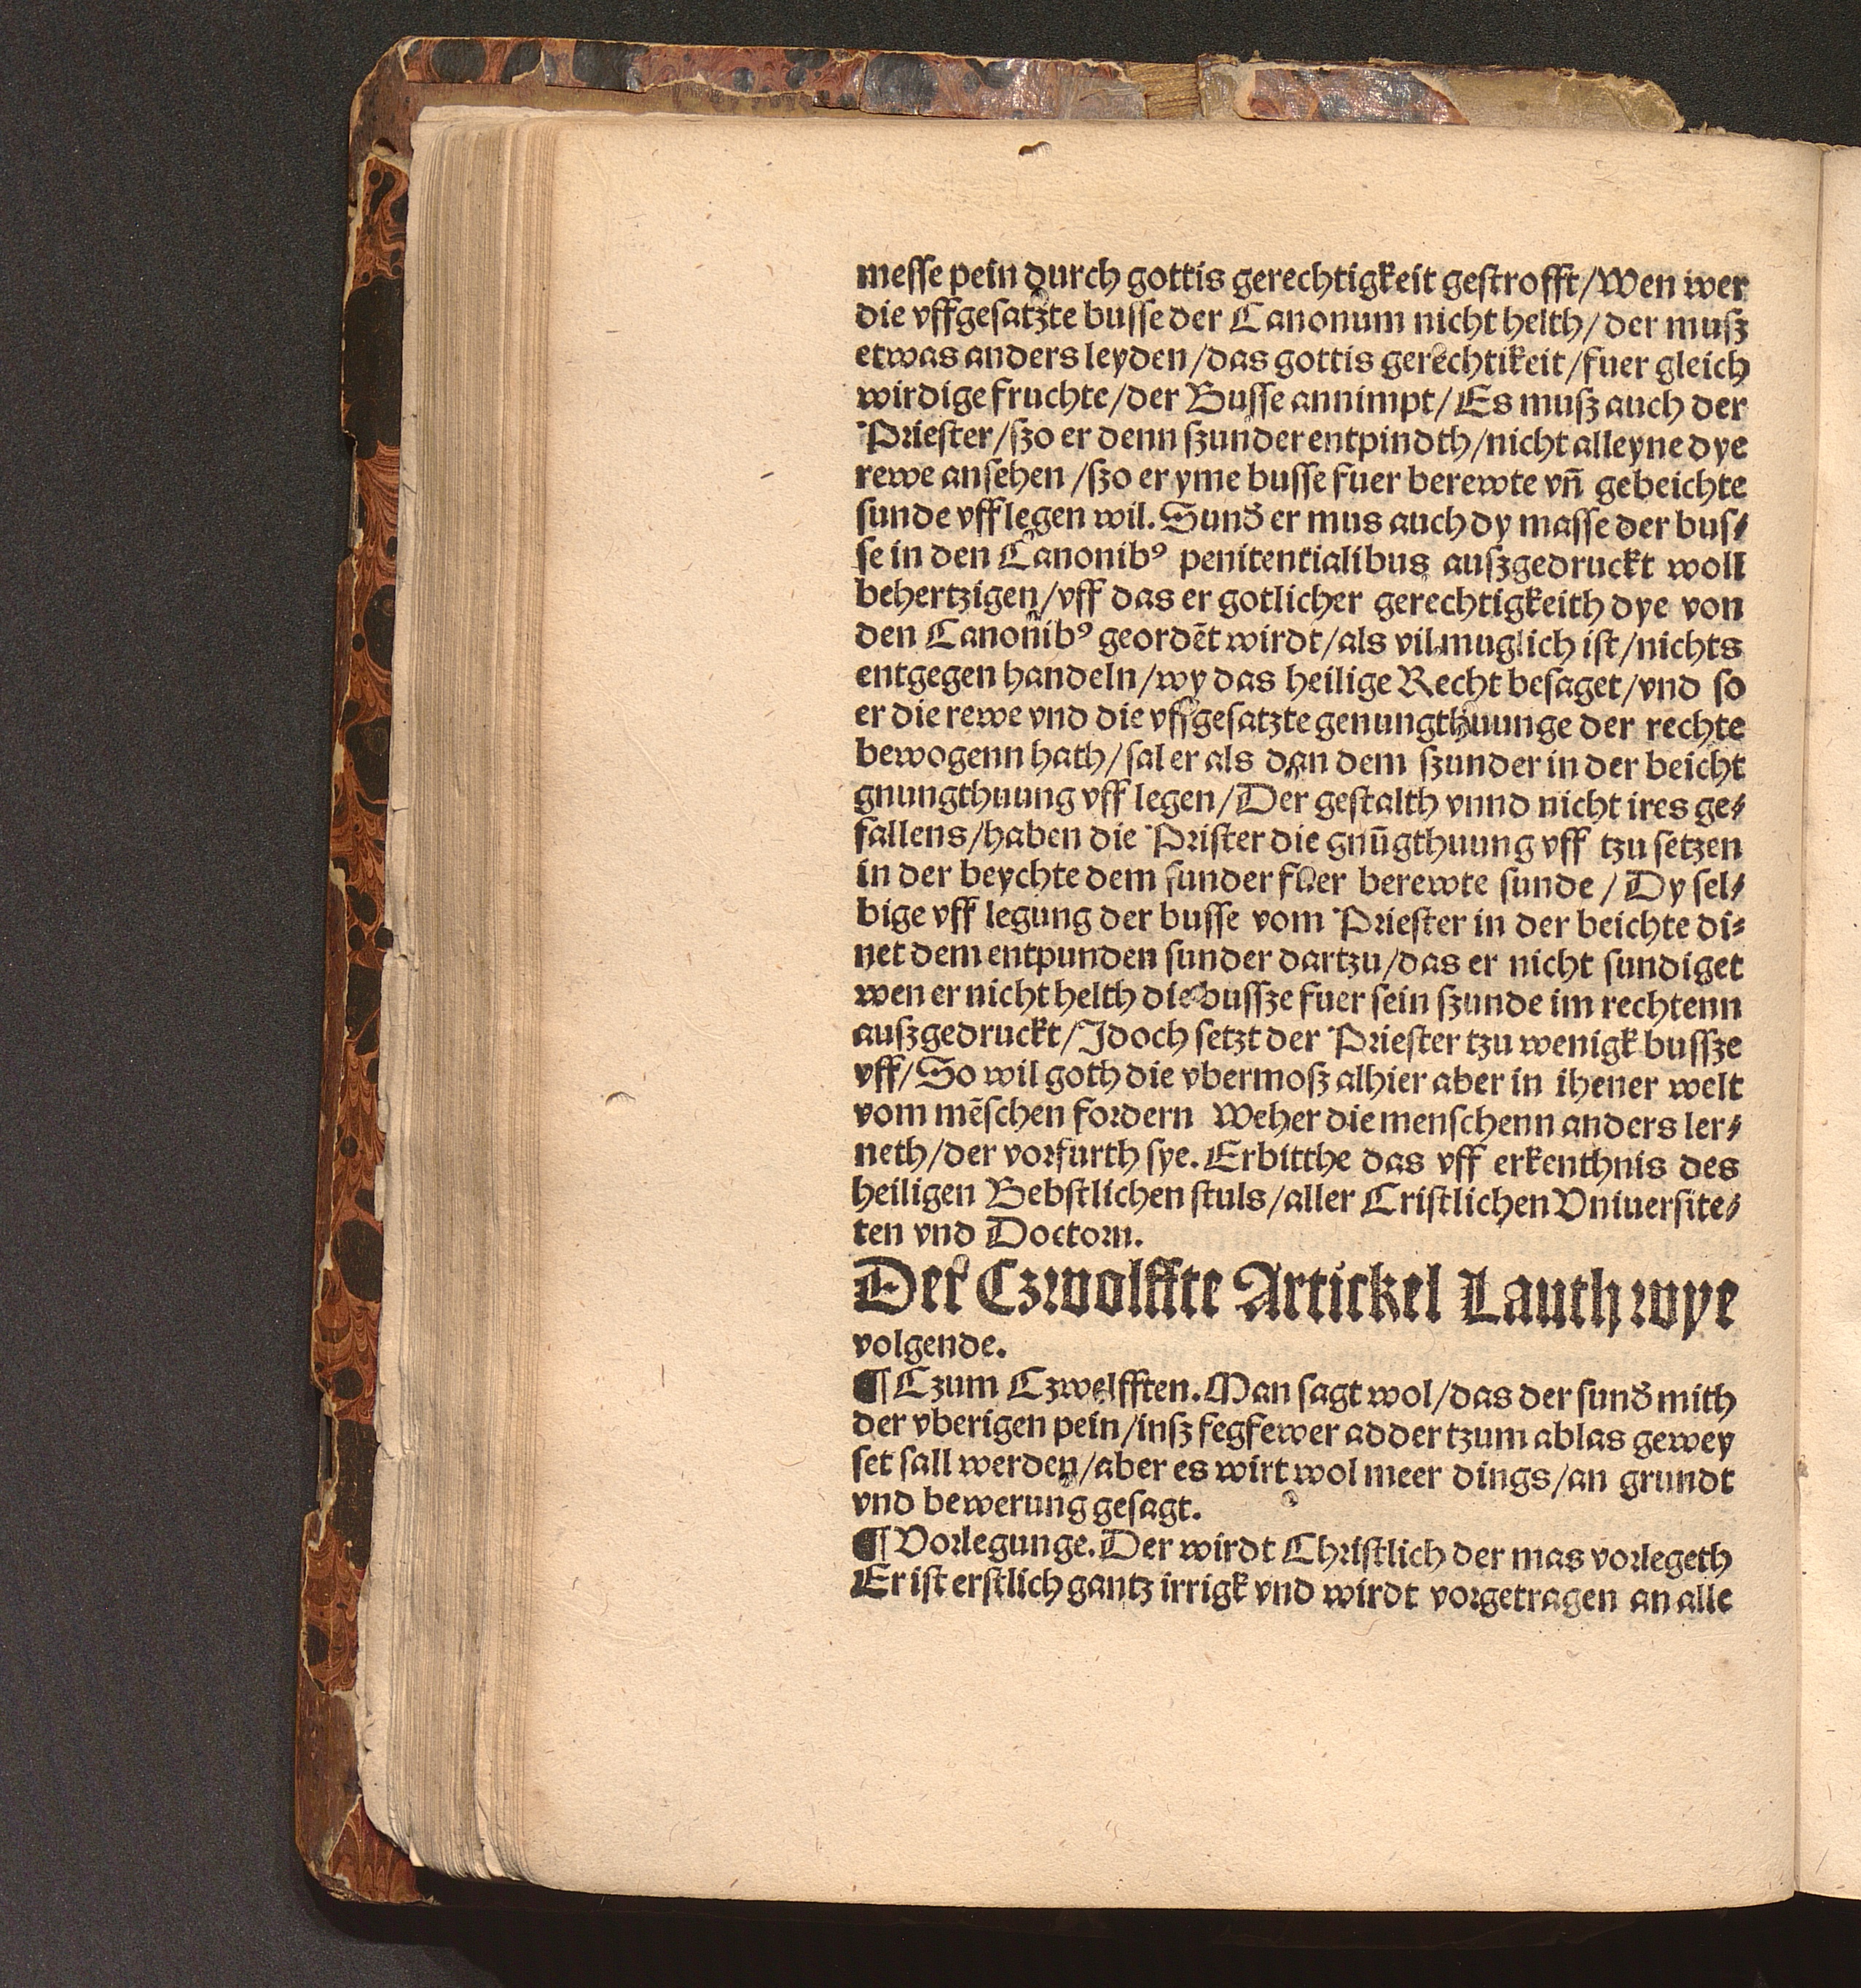 messe pein durch gottis gerechtigkeit gestrofft/Wen wer
die vffgesatzte busse der Canonum nicht helth/ der musz
etwas anders leyden/das gottis gerechtikeit/fuer gleich
wirdige fruchte/der Busse annimpt/ Es musz auch der
Priester/szo er denn szunder entpindth/nicht alleyne dye
rewe ansehen/szo er yme busse fuer berewte vñ gebeichte
sunde vff legen wil. Sund̕ er mus auch dy masse der bus⸗
se in den Canonibꝰ penitentialibus auszgedruckt woll
behertzigen/vff das er gotlicher gerechtigkeith dye von
den Canonibꝰ geordẽt wirdt/als vil muglich ist/nichts
entgegen handeln/wy das heilige Recht besaget/vnd so
er die rewe vnd die vffgesatzte genungthuunge der rechte
bewogenn hath/sal er als dan dem szunder in der beicht
gnungthuung vff legen/Der gestalth vnnd nicht ires ge⸗
fallens/haben die Prister die gnũgthuung vff tzu setzen
in der beychte dem sunder fuer berewte sunde/ Dy sel⸗
bige vff legung der busse vom Priester in der beichte di⸗
net dem entpunden sunder dartzu/das er nicht sundiget
wen er nicht helth die bussze fuer sein szunde im rechtenn
auszgedruckt/Jdoch setzt der Priester tzu wenigk bussze
vff/So wil goth die vbermosz alhier aber in ihener welt
vom mẽschen fordern Weher die menschenn anders ler⸗
neth/der vorfurth sye. Erbitthe das vff erkenthnis des
heiligen Bebstlichen stuls/aller Cristlichen Vniuersite⸗
ten vnd Doctorn.
Der Czwolffte Artickel Lauth wye
volgende.
¶ Czum Czwelfften. Man sagt wol/das der sund̕ mith
der vberigen pein/insz fegfewer adder tzum ablas gewey
set sall werden/aber es wirt wol meer dings/an grundt
vnd bewerung gesagt.
¶ Vorlegunge. Der wirdt Christlich der mas vorlegeth
Er ist erstlich gantz irrigk vnd wirdt vorgetragen an alle